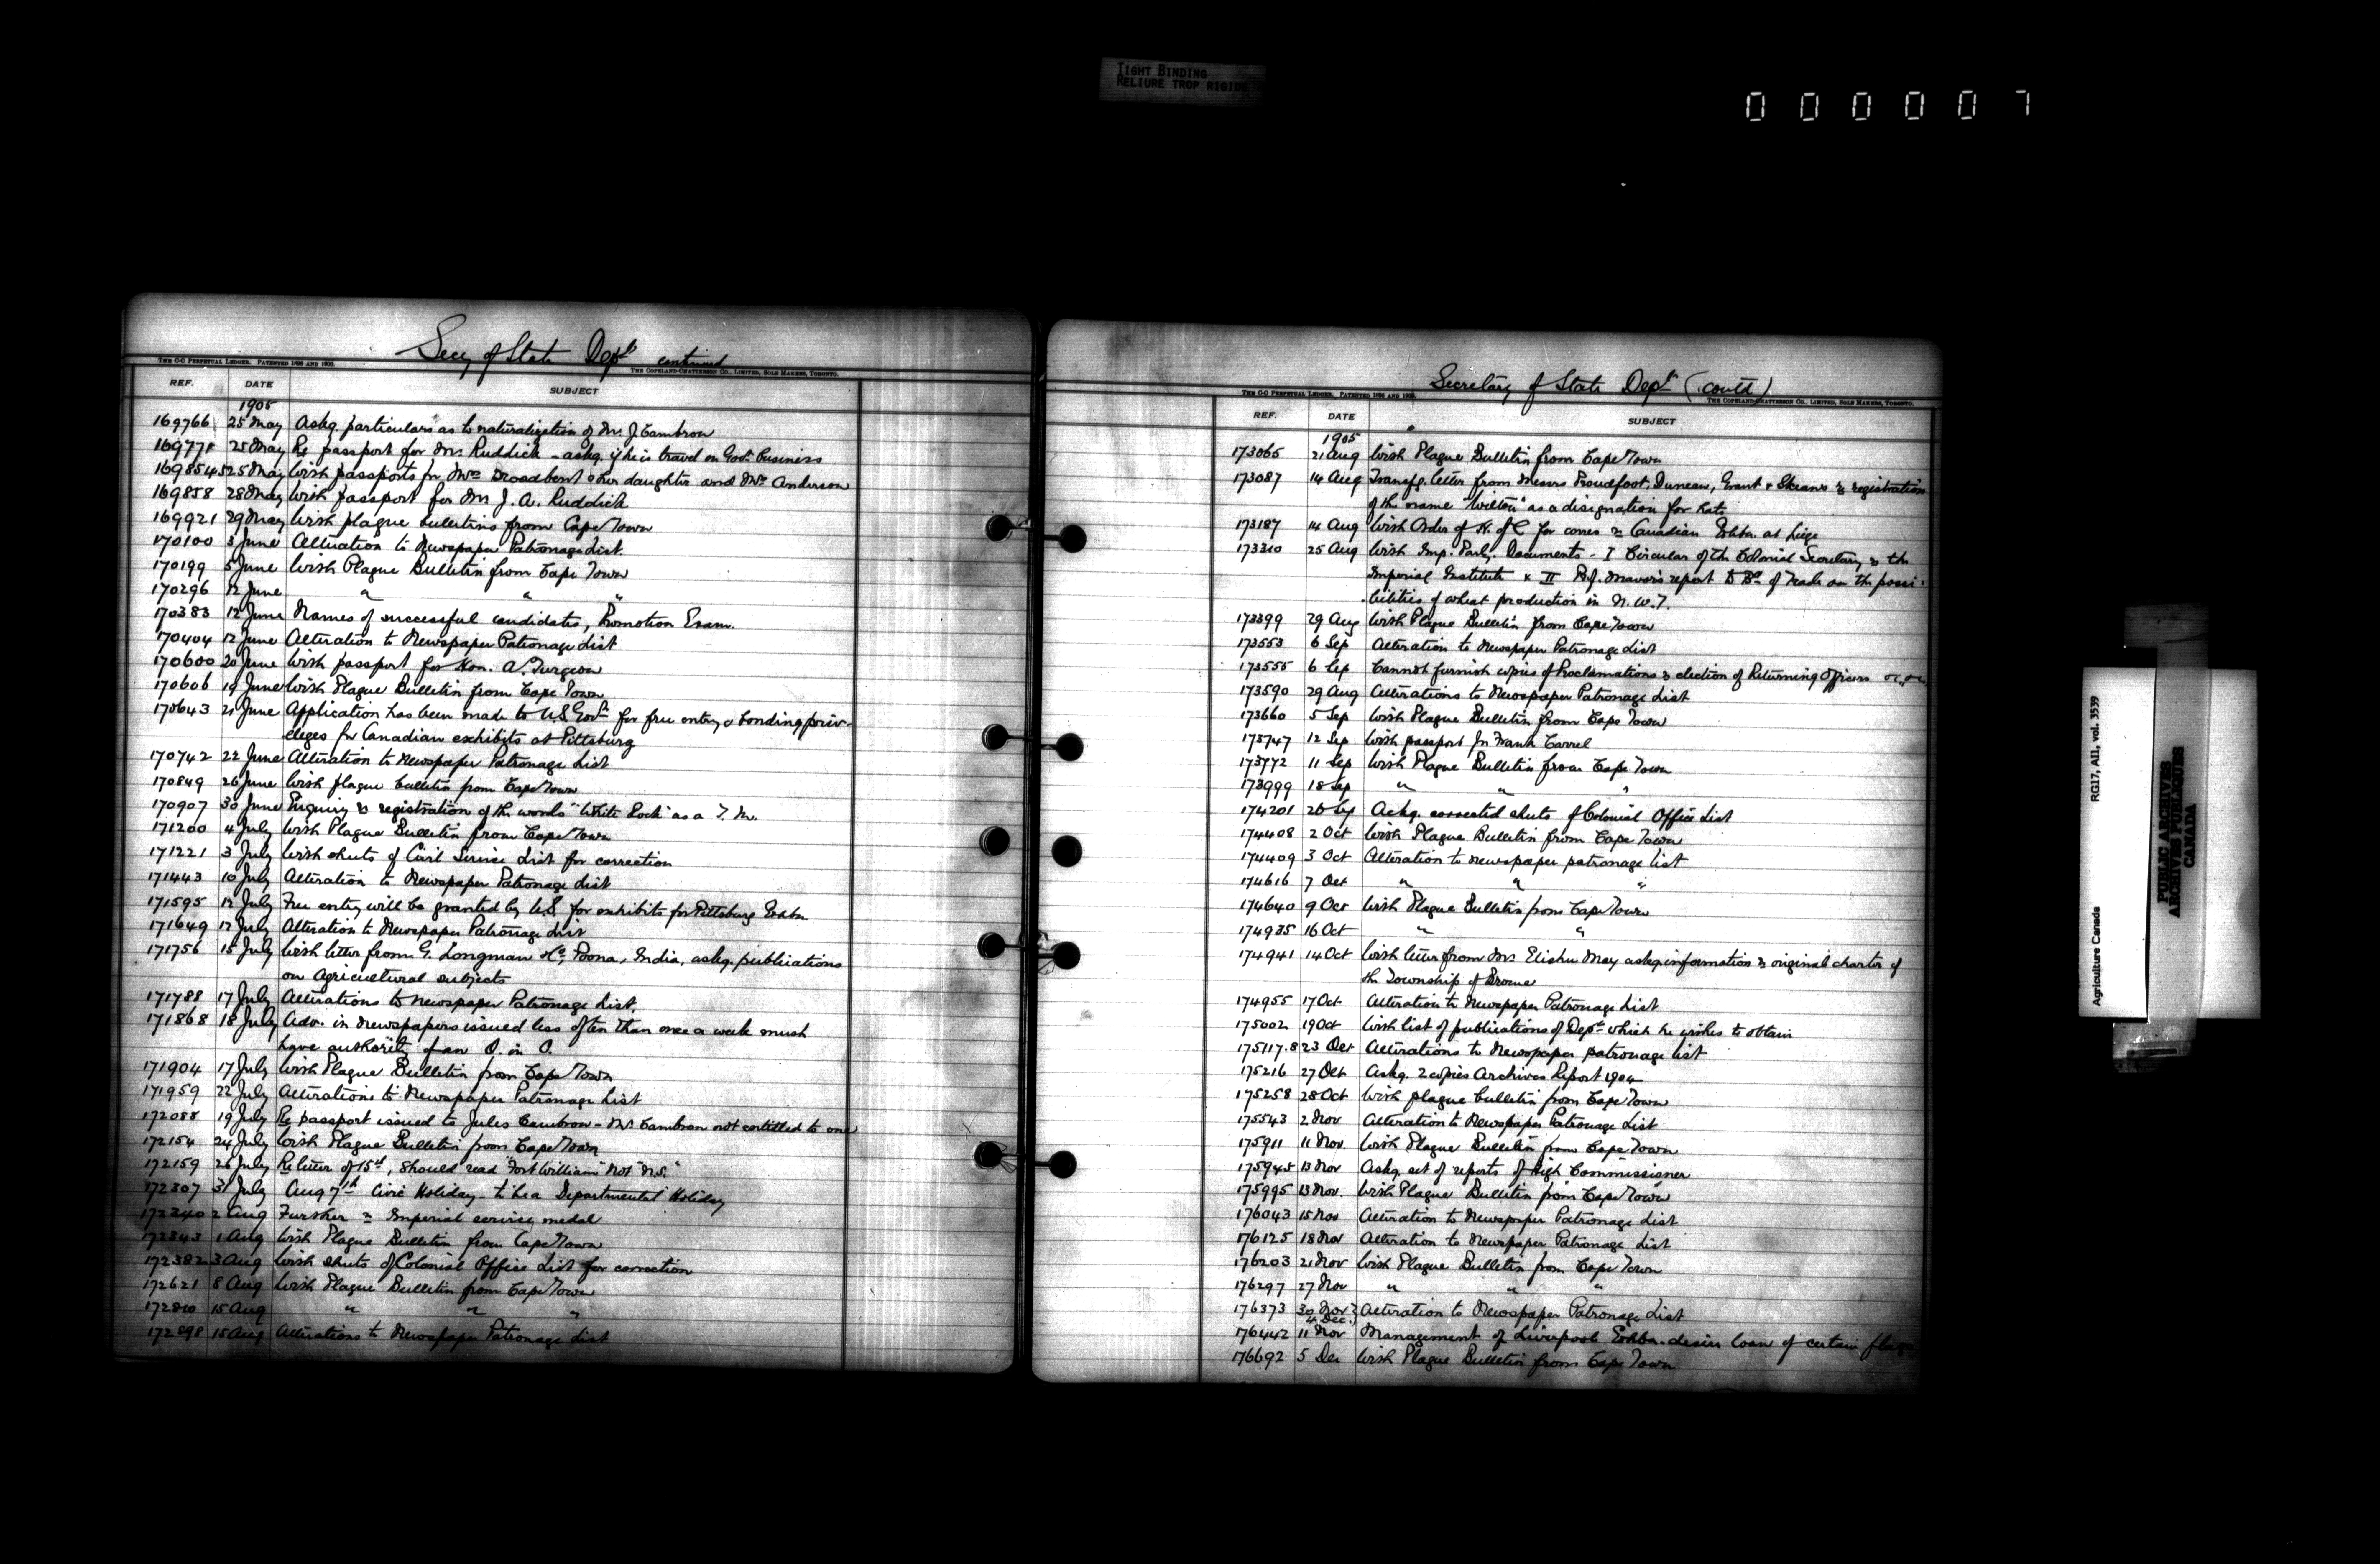 TIGHT BINDING
RELIURE TROP RIGIDE
000007
Secy of State Dept continued
THE C-C PERPETUAL LEDGER. PATENTED 1896 AND 1900.
THE COPELAND-CHATTERSON CO., LIMITED, SOLE MAKERS, TORONTO.
REF. DATE SUBJECT
1905
169766 25 May Askg. particulars as to naturalization of Mr. J Cambron
169778 25 May Re passport for Mr. Ruddick - askg. if he is travel on Govt. business
169854-5 25 May With passports for Mrs Broadbent & her daughter and Mrs Anderson
169858 28 May With passport for Mr J. A. Ruddick
169921 29 May With plague bulletins from Cape Town
170100 3 June Alteration to Newspaper Patronage List.
170199 5 June With Plague Bulletin from Cape Town
170296 12 June " " "
170383 12 June Names of successful candidates, Promotion Exam.
170404 12 June Alteration to Newspaper Patronage List
170600 20 June With passport for Hon. A. Turgeon
170606 19 June With Plague Bulletin from Cape Town
170643 21 June Application has been made to U.S. Govt. for free entry & bonding priv-
eleges for Canadian exhibits at Pittsburg
170742 22 June Alteration to Newspaper Patronage List
170849 26 June With plague bulletin from Cape Town
170907 30 June Enquiry re registration of the words "White Rock" as a T. M.
171200 4 July With Plague Bulletin from Cape Town
171221 3 July With sheets of Civil Service List for correction
171443 10 July Alteration to Newspaper Patronage List
171595 12 July Free entry will be granted by U.S. for exhibits for Pittsburg Exbn.
171649 12 July Alteration to Newspaper Patronage List
171756 15 July With letter from G. Longman & Co, Poona, India, askg. publications
on Agricultural subjects
171788 17 July Alterations to newspaper Patronage List.
171868 18 July Adv. in newspapers issued less often than once a week must
have authority of an O. in C.
171904 17 July With Plague Bulletin from Cape Town
171959 22 July Alterations to Newspaper Patronage List
172088 19 July Re passport issued to Jules Cambron - Mr. Cambron not entitled to one
172154 24 July With Plague Bulletin from Cape Town
172159 26 July Re letter of 15th, should read "Fort William" not "N.S."
172307 31 July Aug 7th Civic Holiday - to be a Departmental Holiday
172340 2 Aug Further re Imperial service medal
172343 1 Aug With Plague Bulletin from Cape Town
172382 3 Aug With sheets of Colonial Office List for correction
172621 8 Aug With Plague Bulletin from Cape Town
172810 15 Aug " " "
172898 15 Aug Alterations to Newspaper Patronage List
Secretary of State Dept (contd)
THE C-C PERPETUAL LEDGER. PATENTED 1896 AND 1900.
THE COPELAND-CHATTERSON CO., LIMITED, SOLE MAKERS, TORONTO.
REF. DATE SUBJECT
1905
173065 21 Aug With Plague Bulletin from Cape Town
173087 14 Aug Transfg. letter from Messrs Proudfoot, Duncan, Grant & Skeans re registration
of the name "Wilton" as a designation for hats
173187 14 Aug With Order of H. of C. for corres re Canadian Exhbn. at Liege
173310 25 Aug With Imp. Parly. Documents - I Circular of the Colonial Secretary re the
Imperial Institute & II Prof. Mavor's report to Bd of Trade on the possi-
bilities of wheat production in N. W. T.
173399 29 Aug With Plague Bulletin from Cape Town
173553 6 Sep Alteration to Newspaper Patronage List
173555 6 Sep Cannot furnish copies of Proclamations re election of Returning Officers &c, &c,
173590 29 Aug Alterations to Newspaper Patronage List
173660 5 Sep With Plague Bulletin from Cape Town
173747 12 Sep With passport for Frank Carrel
173772 11 Sep With Plague Bulletin from Cape Town
173999 18 Sep " " "
174201 20 Sep Askg. corrected sheets of Colonial Office List
174408 2 Oct With Plague Bulletin from Cape Town
174409 3 Oct Alteration to newspaper patronage list
174616 7 Oct " " "
174640 9 Oct With Plague Bulletin from Cape Town
174935 16 Oct " "
174941 14 Oct With letter from Mrs Elisha May askg. information re original charter of
the Township of Brome
174955 17 Oct Alteration to Newspaper Patronage List
175002 19 Oct With list of publications of Dept. which he wishes to obtain
175117.8 23 Oct Alterations to Newspaper patronage list
175216 27 Oct Askg. 2 copies Archives Report 1904
175258 28 Oct With plague bulletin from Cape Town
175543 2 Nov Alteration to Newspaper Patronage List
175911 11 Nov. With Plague Bulletin from Cape Town
175945 13 Nov Askg. set of reports of High Commissioner
175995 13 Nov. With Plague Bulletin from Cape Town
176043 15 Nov Alteration to Newspaper Patronage List
176125 18 Nov Alteration to Newspaper Patronage List
176203 21 Nov With Plague Bulletin from Cape Town
176297 27 Nov " " "
176373 30 Nov } Alteration to Newspaper Patronage List
4 Dec. }
176442 11 Nov Management of Liverpool Exhbn. desire loan of certain flags
176692 5 Dec With Plague Bulletin from Cape Town
Agriculture Canada RG17, AII, vol. 3539
PUBLIC ARCHIVES
ARCHIVES PUBLIQUES
CANADA